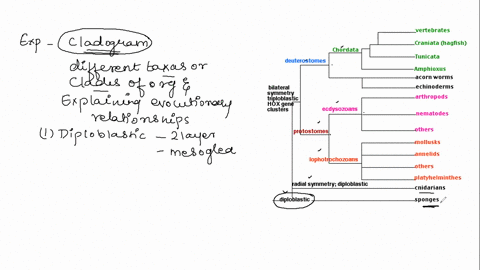 Exp - Cladogram
different taxas or
Clades of org &
Explaining evolutionary
relationships
(1) Diploblastic - 2layer
- mesoglea
vertebrates
Craniata (hagfish)
Chordata
Tunicata
deuterostomes
Amphioxus
acorn worms
echinoderms
bilateral
symmetry
triploblastic
HOX gene
clusters
arthropods
ecdysozoans
nematodes
others
protostomes
mollusks
annelids
lophotrochozoans
others
platyhelminthes
radial symmetry; diploblastic
cnidarians
diploblastic
sponges